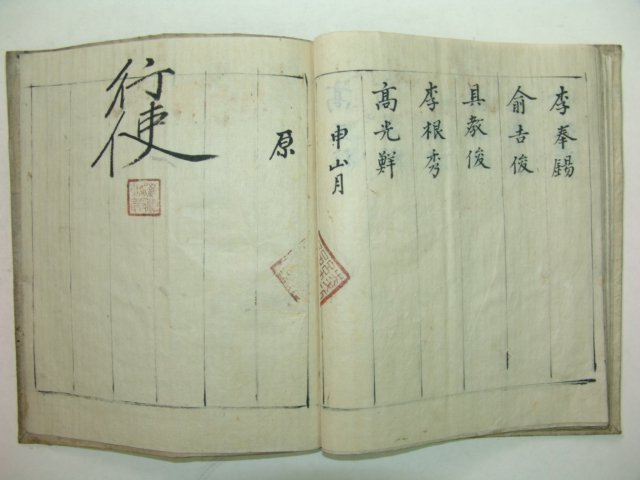 李奉錫
俞吉俊
具教俊
李根秀
高光鮮
申
原
行使